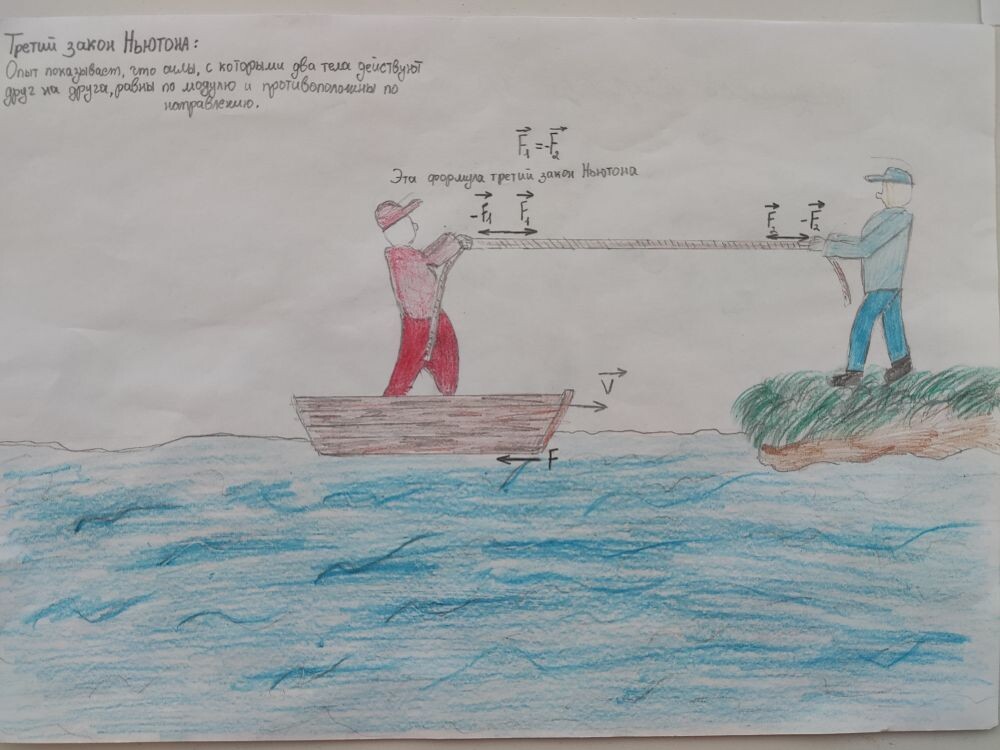 Третий закон Ньютона:
Опыт показывает, что силы, с которыми два тела действуют
друг на друга, равны по модулю и противоположны по
направлению.
F₁ = -F₂
Эта формула третий закон Ньютона
-F₁ F₁
F₂ -F₂
V
F